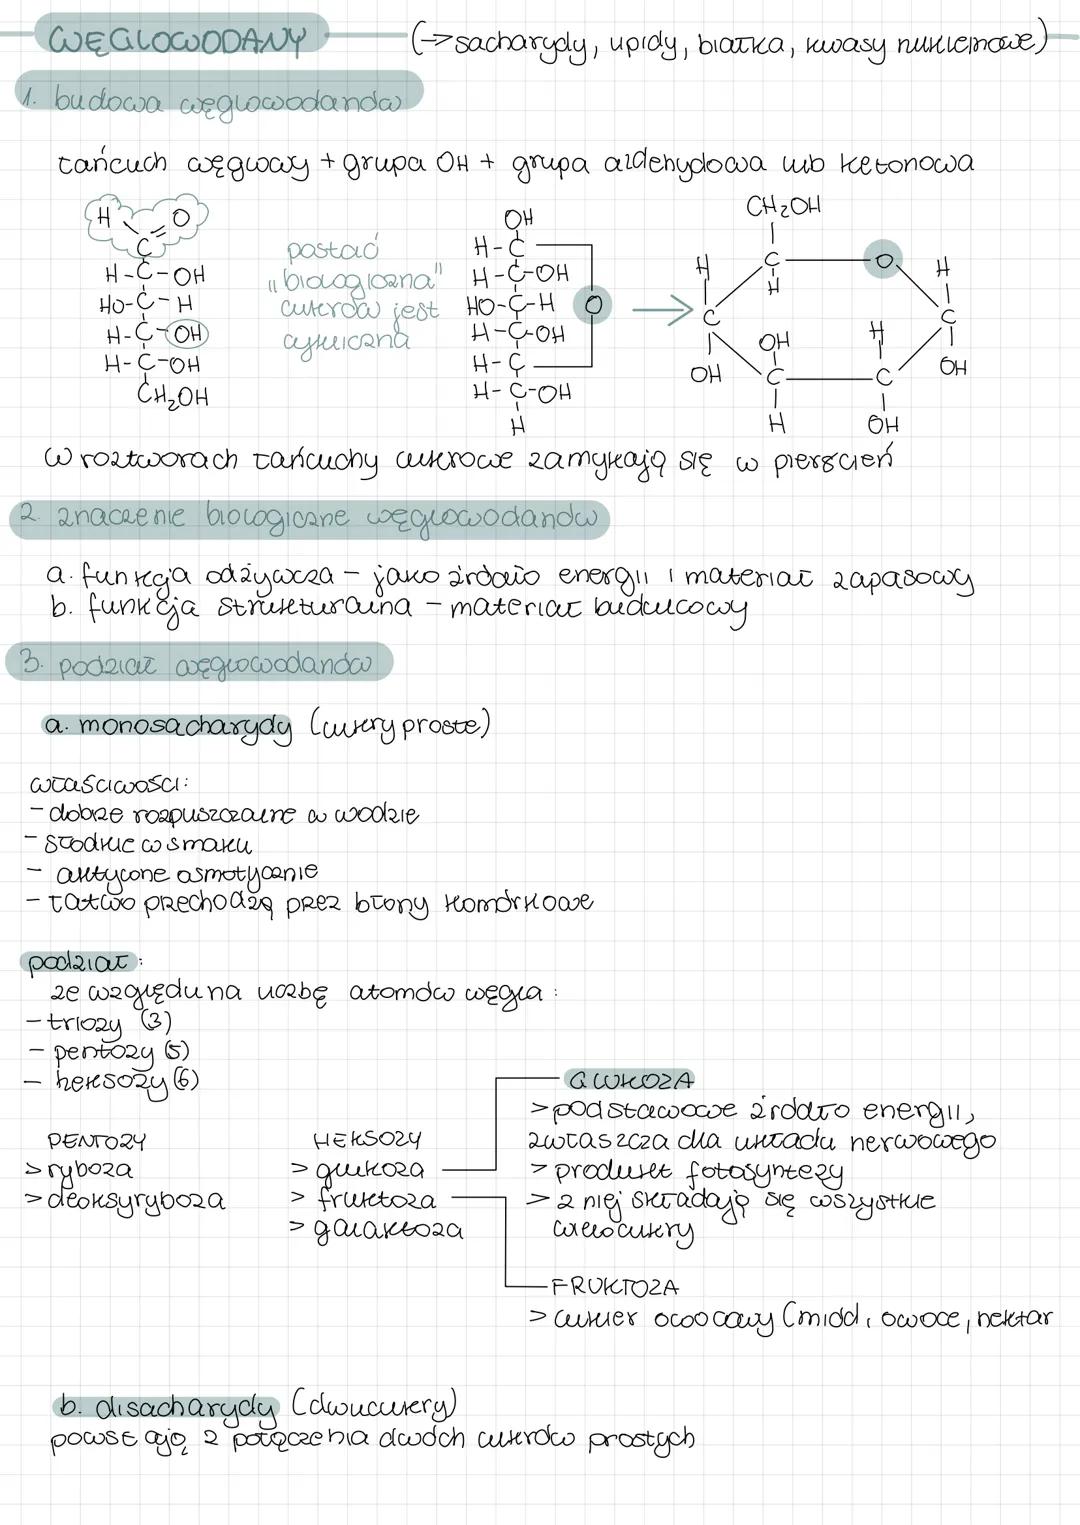 WĘGLOWODANY (→ sacharydy, lipidy, białka, kwasy nukleinowe)
1. budowa węglowodanów
łańcuch węglowy + grupa OH + grupa aldehydowa lub ketonowa
H O
C
H-C-OH
HO-C-H
H-C-OH
H-C-OH
CH₂OH
postać
"biologiczna"
cukrów jest
cykliczna
OH
H-C
H-C-OH
HO-C-H O
H-C-OH
H-C
H-C-OH
H
→
CH₂OH
H C O H
H
C C
OH H
OH C C OH
H OH
W roztworach łańcuchy cukrowe zamykają się w pierścień
2. znaczenie biologiczne węglowodanów
a. funkcja odżywcza - jako źródło energii i materiał zapasowy
b. funkcja strukturalna - materiał budulcowy
3. podział węglowodanów
a. monosacharydy (cukry proste)
właściwości:
- dobrze rozpuszczalne w wodzie
- słodkie w smaku
- aktycone osmotycznie
- łatwo przechodzą przez błony komórkowe
podział:
ze względu na liczbę atomów węgla:
- triozy (3)
- pentozy (5)
- heksozy (6)
PENTOZY
> ryboza
> deoksyryboza
HEKSOZY
> glukoza
> fruktoza
> galaktoza
GLUKOZA
> podstawowe źródło energii,
zwłaszcza dla układu nerwowego
> produkt fotosyntezy
> z niej składają się wszystkie
wielocukry
FRUKTOZA
> cukier owocowy (miód, owoce, nektar
b. disacharydy (dwucukry)
powstają z połączenia dwóch cukrów prostych